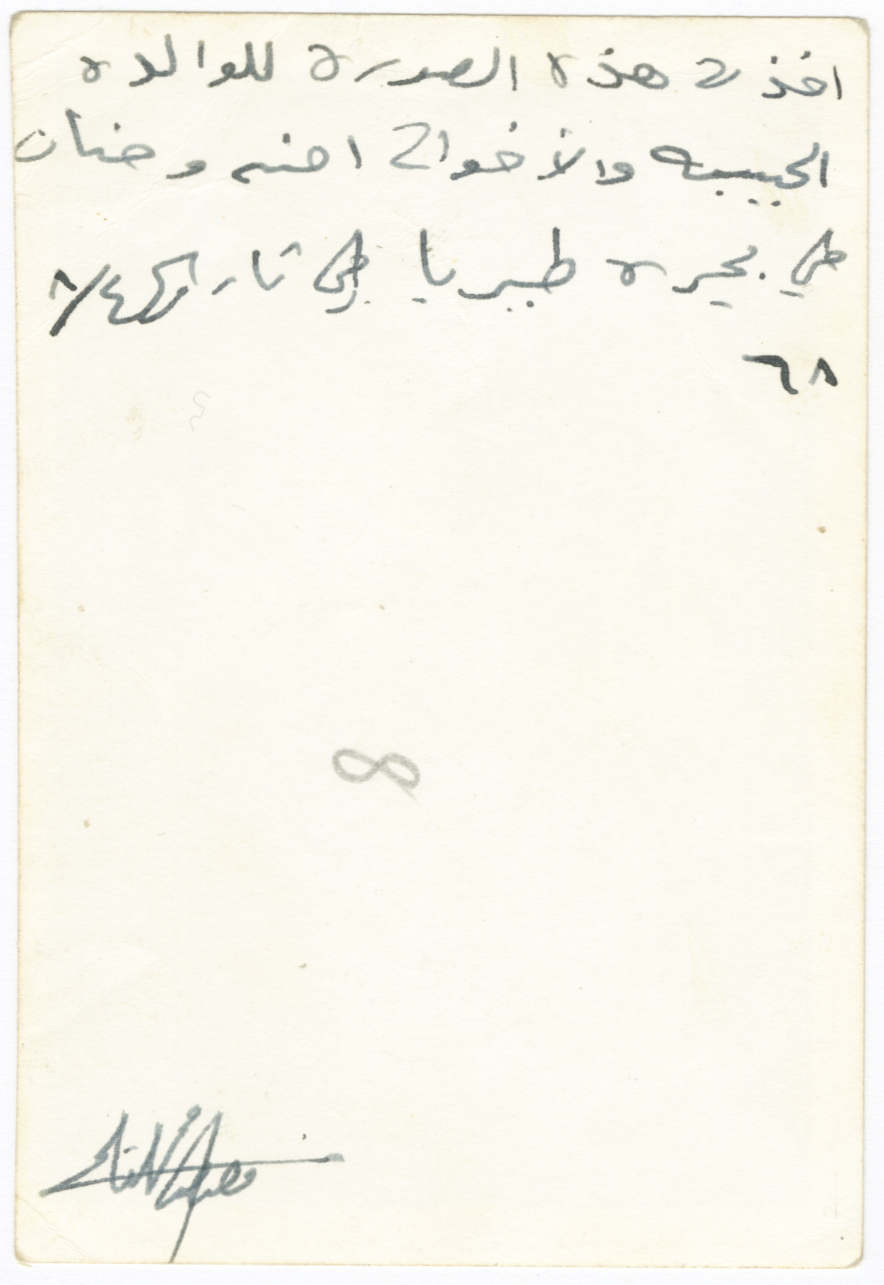 اخذت هذه الصورة للوالدة
الحبيبه والأخوات امنه وحنان
في بحيرة طبريا في تاريخ ٨/٤
٦٨
8